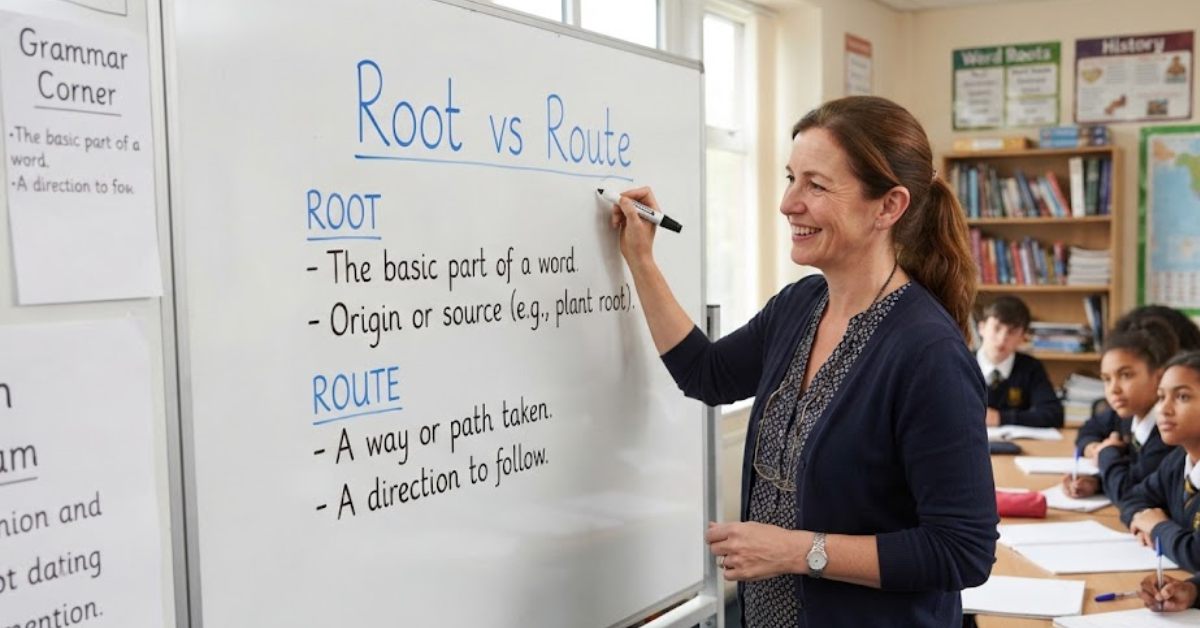 Grammar
Corner
•The basic part of a
word.
•A direction to
Root vs Route
ROOT
- The basic part of a word.
- Origin or source (e.g., plant root).
ROUTE
- A way or path taken.
- A direction to follow.
nion and
dating
Word Roots
History